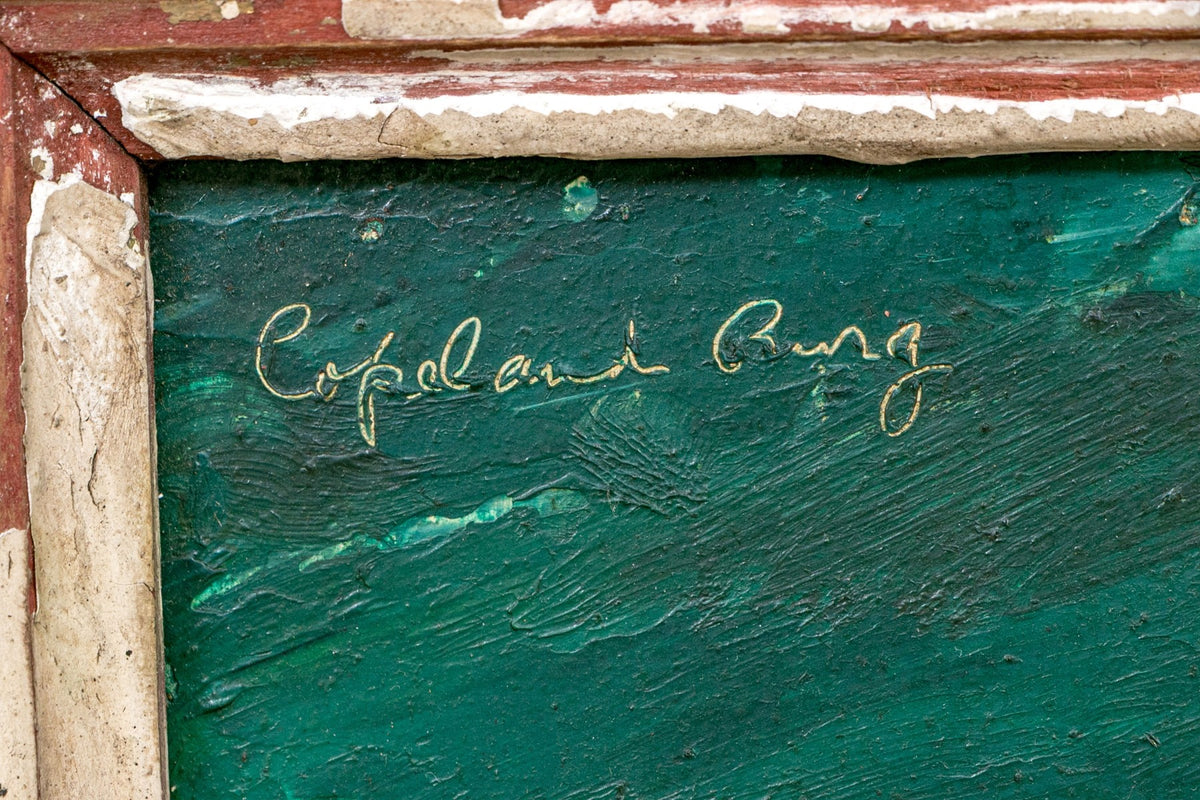 Copeland Burg